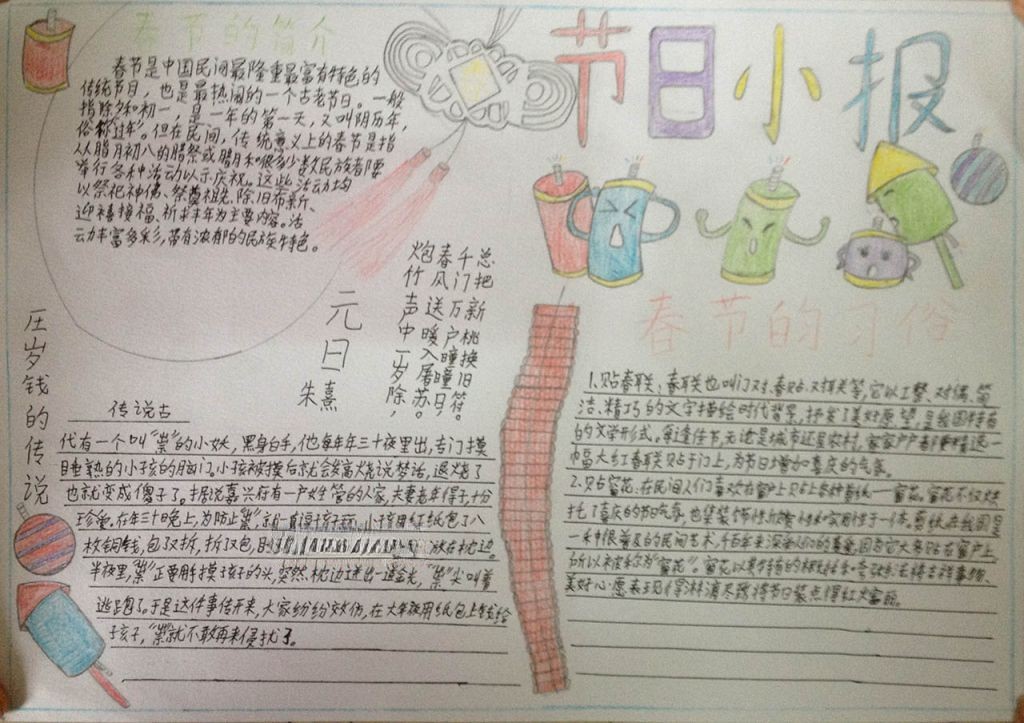 节日小报
春节的简介
春节是中国民间最隆重最富有特色的
传统节日，也是最热闹的一个古老节日。一般
指除夕和初一，是一年的第一天，又叫阴历年，
俗称"过年"。但在民间，传统意义上的春节是指
从腊月初八的腊祭或腊月
举行各种活动以示庆祝。这些活动均
以祭祀神佛、祭奠祖先、除旧布新、
迎禧接福、祈求丰年为主要内容。活
动丰富多彩，带有浓郁的民族特色。
元日
朱熹
炮竹声中一岁除，
春风送暖入屠苏。
千门万户曈曈日，
总把新桃换旧符。
压岁钱的传说
传说古
代有一个叫"祟"的小妖，黑身白手，他每年年三十夜里出，专门摸
睡熟的小孩的脑门。小孩被摸后就会发高烧说梦话，退烧了
也就变成傻子了。据说嘉兴府有一户姓管的人家，夫妻老年得子，十分
珍爱。在年三十晚上，为防止"祟"红纸包了八
枚铜钱，包了又拆，拆了又包，放在枕边。
半夜里，"祟"正要用手摸孩子的头，突然枕边迸出一道金光，"祟"尖叫着
逃跑了。于是这件事传开来，大家纷纷效仿，在大年夜用纸包上钱给
孩子，"祟"就不敢再来侵扰了。
春节的习俗
1.贴春联：春联也叫门对、春贴、对联等，它以工整、对偶、简
洁、精巧的文字描绘时代背景，抒发了美好愿望，是我国特有
的文学形式。每逢佳节，无论是城市还是农村，家家户户都要精选一
幅大红春联贴于门上，为节日增加喜庆的气氛。
2.贴窗花：在民间人们喜欢在窗户上贴上各种剪纸——窗花。窗花不仅烘
托了喜庆的节日气氛，也集装饰性、欣赏性和实用性于一体。剪纸在我国是
一种很普及的民间艺术，千百年来深受人们的喜爱，因为它大多贴在窗户上
所以被称为"窗花"。窗花以其特有的将吉祥事物、
美好心愿表现得淋漓尽致，将节日装点得红火富丽。